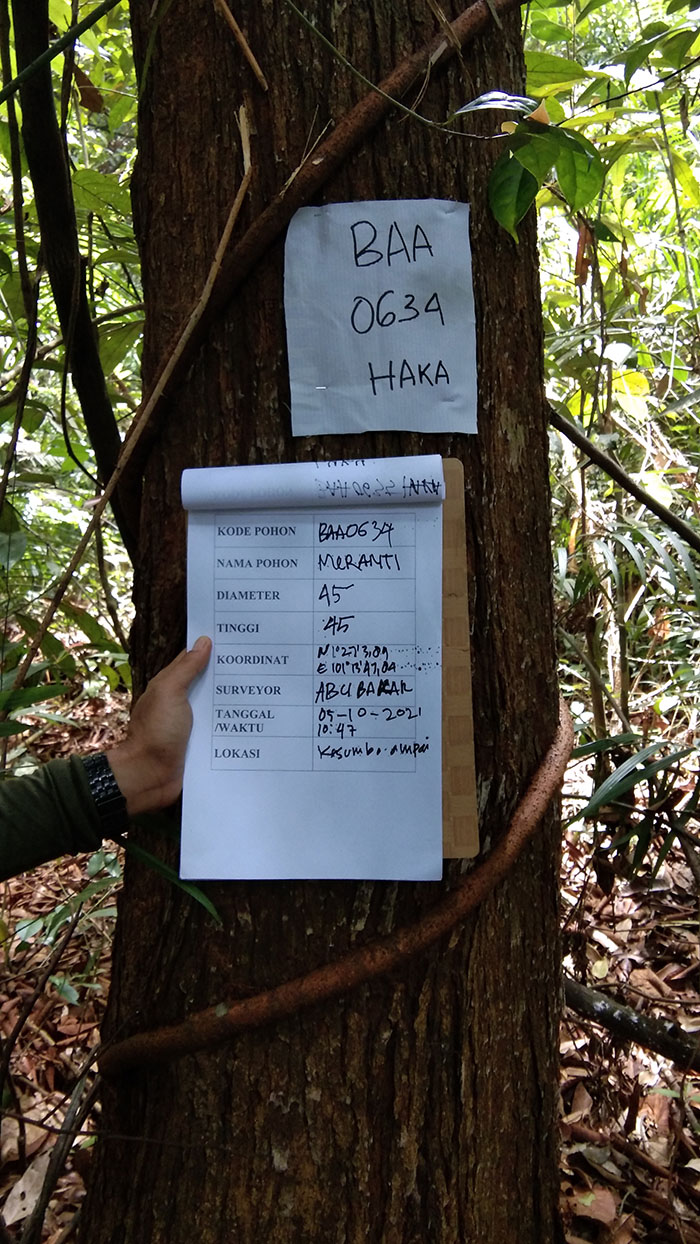 BAA
0634
HAKA
KODE POHON BAA0634
NAMA POHON MERANTI
DIAMETER 45
TINGGI 45
KOORDINAT N 1°27'3,09
E 101°13'47,09
SURVEYOR ABU BAKAR
TANGGAL 05-10-2021
/WAKTU 10:47
LOKASI Kesumbo ampai